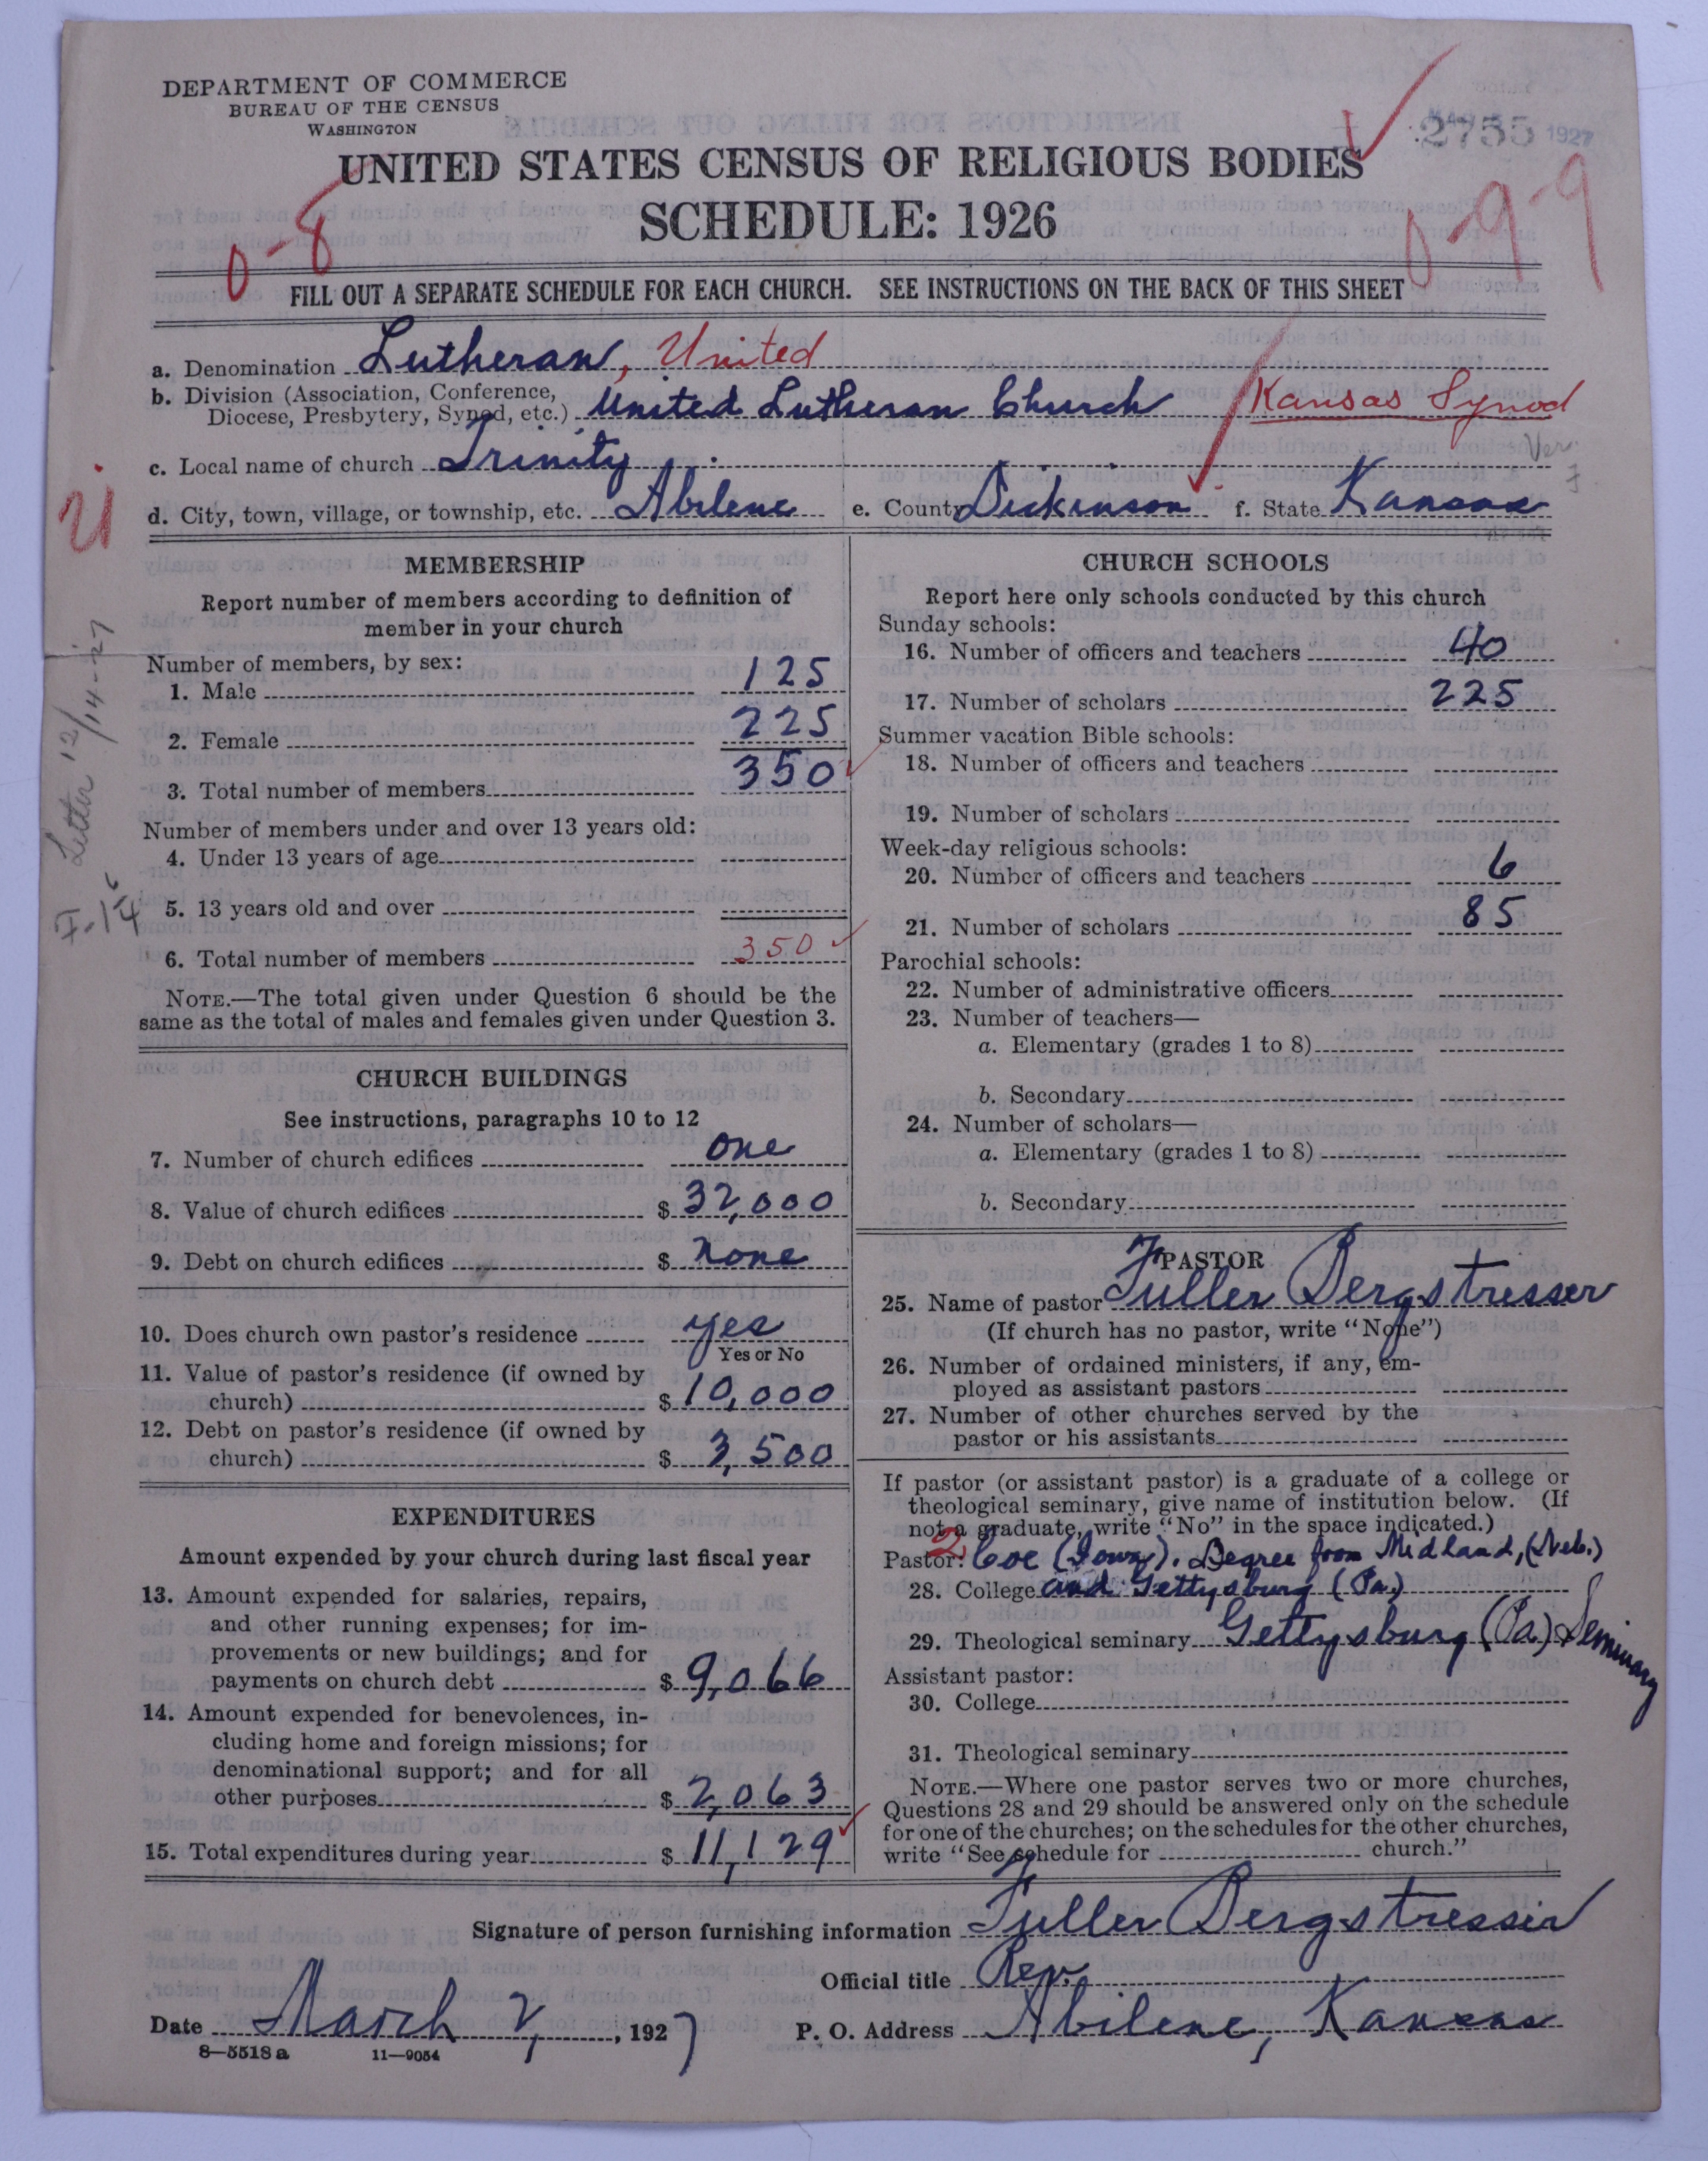 DEPARTMENT OF COMMERCE
BUREAU OF THE CENSUS
WASHINGTON
2755
1927
UNITED STATES CENSUS OF RELIGIOUS BODIES
SCHEDULE: 1926
0-8
0-9-9
FILL OUT A SEPARATE SCHEDULE FOR EACH CHURCH. SEE INSTRUCTIONS ON THE BACK OF THIS SHEET
a. Denomination Lutheran, United
b. Division (Association, Conference,
Diocese, Presbytery, Synod, etc.) United Lutheran Church Kansas Synod
c. Local name of church Trinity
Ver.
d. City, town, village, or township, etc. Abilene e. County Dickinson f. State Kansas
Letter 12/14-27
MEMBERSHIP
Report number of members according to definition of
member in your church
Number of members, by sex:
1. Male 125
2. Female 225
3. Total number of members 350
Number of members under and over 13 years old:
4. Under 13 years of age
5. 13 years old and over
6. Total number of members 350
NOTE.—The total given under Question 6 should be the
same as the total of males and females given under Question 3.
CHURCH BUILDINGS
See instructions, paragraphs 10 to 12
7. Number of church edifices one
8. Value of church edifices $ 32,000
9. Debt on church edifices $ none
10. Does church own pastor's residence yes
Yes or No
11. Value of pastor's residence (if owned by
church) $ 10,000
12. Debt on pastor's residence (if owned by
church) $ 3,500
EXPENDITURES
Amount expended by your church during last fiscal year
13. Amount expended for salaries, repairs,
and other running expenses; for im-
provements or new buildings; and for
payments on church debt $ 9,066
14. Amount expended for benevolences, in-
cluding home and foreign missions; for
denominational support; and for all
other purposes $ 2,063
15. Total expenditures during year $ 11,129
CHURCH SCHOOLS
Report here only schools conducted by this church
Sunday schools:
16. Number of officers and teachers 40
17. Number of scholars 225
Summer vacation Bible schools:
18. Number of officers and teachers
19. Number of scholars
Week-day religious schools:
20. Number of officers and teachers 6
21. Number of scholars 85
Parochial schools:
22. Number of administrative officers
23. Number of teachers—
a. Elementary (grades 1 to 8)
b. Secondary
24. Number of scholars—
a. Elementary (grades 1 to 8)
b. Secondary
PASTOR
25. Name of pastor Fuller Bergstresser
(If church has no pastor, write "None")
26. Number of ordained ministers, if any, em-
ployed as assistant pastors
27. Number of other churches served by the
pastor or his assistants
If pastor (or assistant pastor) is a graduate of a college or
theological seminary, give name of institution below. (If
not a graduate, write "No" in the space indicated.)
2
Pastor: Coe (Iowa). Degree from Midland, (Neb.)
28. College and Gettysburg (Pa.)
29. Theological seminary Gettysburg (Pa.) Seminary
Assistant pastor:
30. College
31. Theological seminary
NOTE.—Where one pastor serves two or more churches,
Questions 28 and 29 should be answered only on the schedule
for one of the churches; on the schedules for the other churches,
write "See schedule for church."
Signature of person furnishing information Fuller Bergstresser
Official title Rev.
Date March 2, 1927 P. O. Address Abilene, Kansas
8—5518 a 11—9054